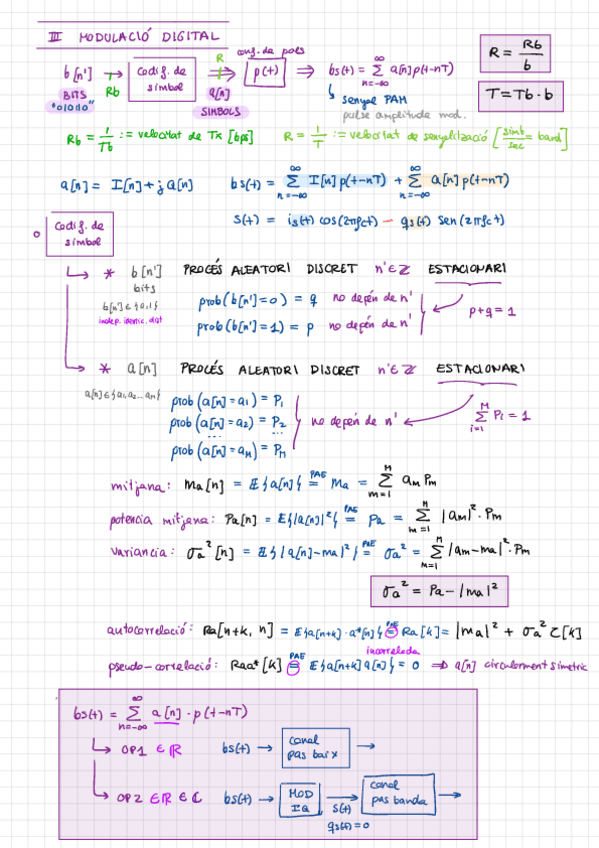 III MODULACIÓ DIGITAL
b[n'] → Rb → Codif. de símbol ⇒ R a[n] ⇒ conf. de pols p(t) ⇒ bs(t) = Σ_{n=-∞}^{∞} a[n]p(t-nT)
R = Rb/b
BITS "01010" SIMBOLS ↳ senyal PAM
T = Tb · b
pulse amplitude mod.
Rb = 1/Tb := velocitat de Tx [bps] R = 1/T := velocitat de senyalització [simb/sec = baud]
a[n] = I[n] + j Q[n] bs(t) = Σ_{n=-∞}^{∞} I[n] p(t-nT) + Σ_{n=-∞}^{∞} Q[n] p(t-nT)
S(t) = is(t) cos(2πfct) - qs(t) sen(2πfct)
o Codif. de símbol
↳ * b[n'] PROCÉS ALEATORI DISCRET n'∈ℤ ESTACIONARI
bits
b[n]∈{0,1}
indep. identic. dist
prob(b[n']=0) = q no depén de n'
prob(b[n']=1) = p no depén de n'
p+q = 1
↳ * a[n] PROCÉS ALEATORI DISCRET n'∈ℤ ESTACIONARI
a[n]∈{a1, a2 ... aM}
prob(a[n]=a1) = P1
prob(a[n]=a2) = P2
... ...
prob(a[n]=aM) = PM
no depén de n'
Σ_{i=1}^{M} Pi = 1
mitjana: Ma[n] = E{a[n]} =^{PAE} Ma = Σ_{m=1}^{M} am Pm
potencia mitjana: Pa[n] = E{|a[n]|²} =^{PAE} Pa = Σ_{m=1}^{M} |am|² · Pm
variancia: σa²[n] = E{|a[n]-ma|²} =^{PAE} σa² = Σ_{m=1}^{M} |am-ma|² · Pm
σa² = Pa - |ma|²
autocorrelació: Ra[n+k, n] = E{a[n+k] · a*[n]} =^{PAE} Ra[k] = |ma|² + σa² ζ[k]
incorrelada
pseudo-correlació: Raa*[k] =^{PAE} E{a[n+k] a[n]} = 0 ⇒ a[n] circularment simetric
bs(t) = Σ_{n=-∞}^{∞} a[n] · p(t-nT)
↳ OP1 ∈ ℝ bs(t) → canal pas baix →
↳ OP2 ∈ ℝ ∈ ℂ bs(t) → MOD IQ → S(t) → canal pas banda →
qs(t)=0